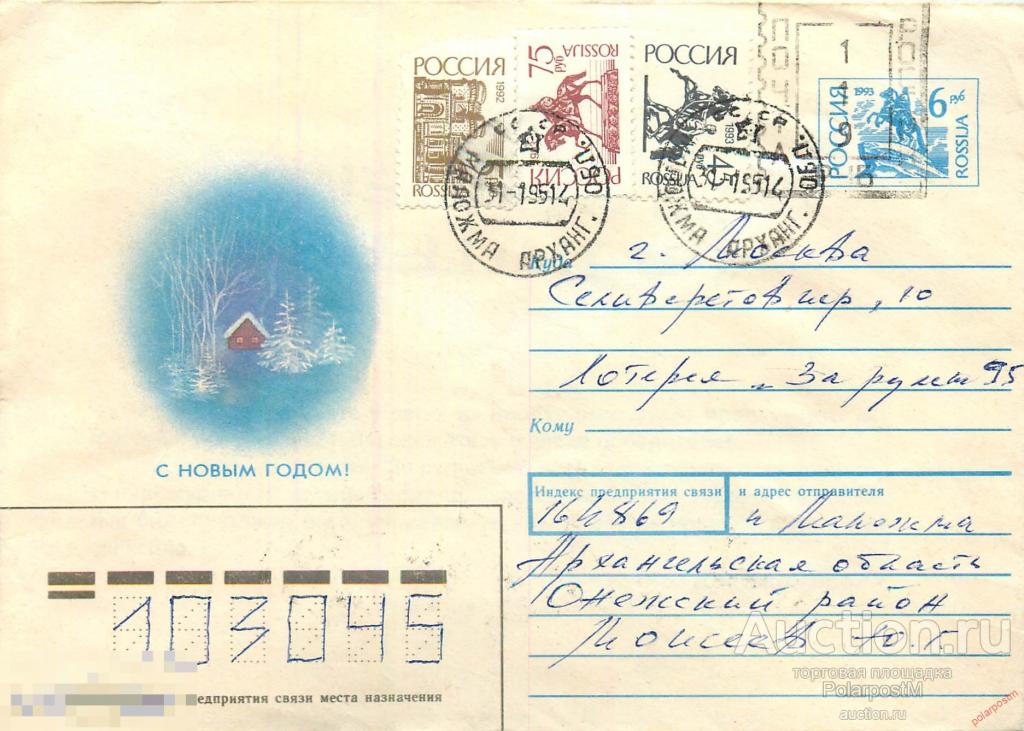 РОССИЯ
1992
ROSSIJA
75 РУБ
РОССИЯ
РОССИЯ
1993
4
ROSSIJA
ПОЧТА
1
1
9
РОССИЯ
1993
6 РУБ
ROSSIJA
СССР · USSR
31-1 95 14
МАЛОЖМА АРХАНГ. ОБЛ.
СССР
31-1 95 14
МАЛОЖМА АРХАНГ. ОБЛ.
С НОВЫМ ГОДОМ!
Куда г. Москва
пер, 10
Лотерея „За рулем 95
Кому
Индекс предприятия связи и адрес отправителя
164869 п Маложма
Архангельская область
Онежский район
Моисеев Ю. Г.
103045
едприятия связи места назначения
Auction.ru
торговая площадка
PolarpostM
auction.ru
polarpostm